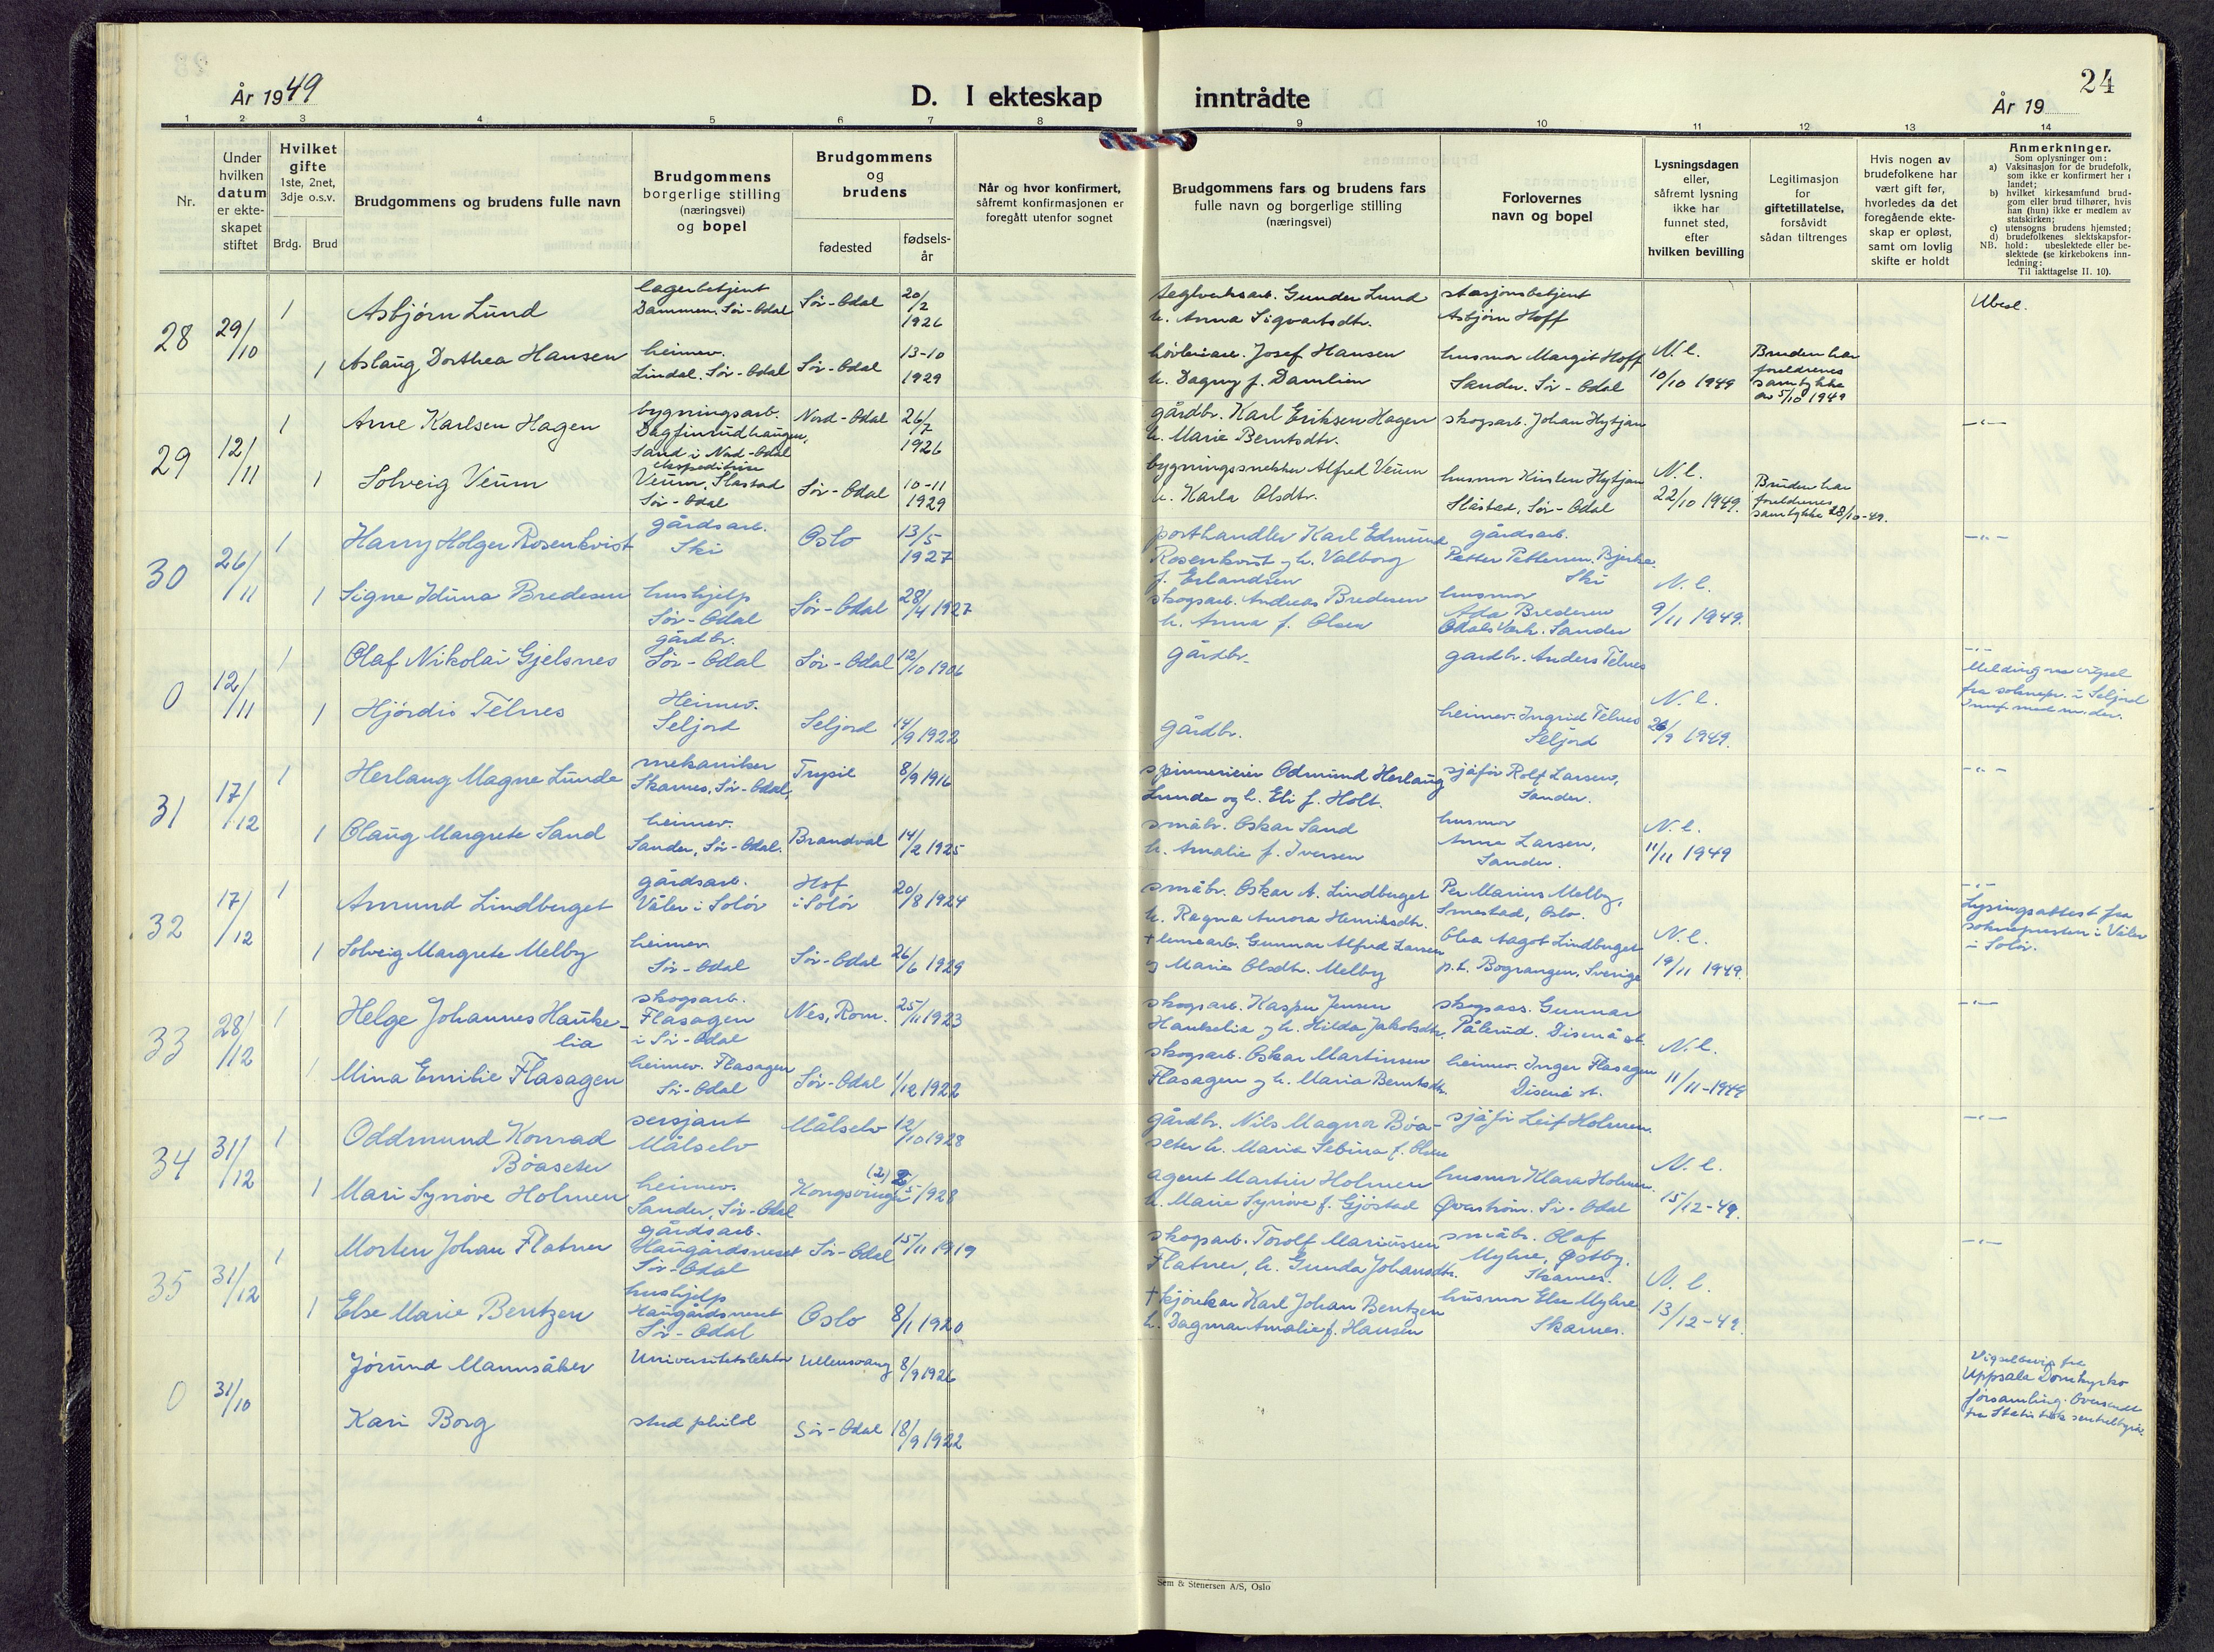 År 1949
D. I ekteskap inntrådte
24
År 19
1 2 3 4 5 6 7 8 9 10 11 12 13 14
Nr.
Under hvilken datum er ekteskapet stiftet
Hvilket gifte
1ste, 2net, 3dje o.s.v.
Brdg. Brud
Brudgommens og brudens fulle navn
Brudgommens borgerlige stilling (næringsvei) og bopel
Brudgommens og brudens
fødested
fødsels-år
Når og hvor konfirmert, såfremt konfirmasjonen er foregått utenfor sognet
Brudgommens fars og brudens fars fulle navn og borgerlige stilling (næringsvei)
Forlovernes navn og bopel
Lysningsdagen eller, såfremt lysning ikke har funnet sted, efter hvilken bevilling
Legitimasjon for giftetillatelse, forsåvidt sådan tiltrenges
Hvis nogen av brudefolkene har vært gift før, hvorledes da det foregående ekteskap er opløst, samt om lovlig skifte er holdt
Anmerkninger.
Som oplysninger om:
a) Vaksinasjon for de brudefolk, som ikke er konfirmert her i landet;
b) hvilket kirkesamfund brudgom eller brud tilhører, hvis han (hun) ikke er medlem av statskirken;
c) utensogns brudens hjemsted;
d) brudefolkenes slektskapsforhold: ubeslektede eller beslektede (se kirkebokens innledning:
NB. Til iakttagelse II. 10).
28 29/10 1 Asbjørn Lund lagerbetjent Dammen, Sør-Odal Sør-Odal 20/2 1926 teglverksarb. Gunder Lund h. Anna Sigvartsdtr. stasjonsbetjent Asbjørn Hoff Ubesl.
1 Aslaug Dorthea Hansen heimev. Lindal. Sør-Odal Sør-Odal 13-10 1929 Josef Hansen h. Dagny f. Damlien husmor Margit Hoff Sander. Sør-Odal N.l. 10/10 1949 Bruden har foreldrenes samtykke av 5/10 1949
29 12/11 1 Arne Karlsen Hagen bygningsarb. Dagfinrudhaugen, Sand i Nord-Odal Nord-Odal 26/7 1926 gårdbr. Karl Eriksen Hagen h. Marie Berntsdtr. skogsarb. Johan Hytjan -"-
1 Solveig Veum ekspeditrise Veum, Slåstad Sør-Odal Sør-Odal 10-11 1929 bygningssnekker Alfred Veum h. Karla Olsdtr. husmor Kirsten Hytjan Slåstad, Sør-Odal N.l. 22/10 1949. Bruden har foreldrenes samtykke 28/10-49.
30 26/11 1 Harry Holger Rosenkvist gårdsarb. Ski Oslo 13/5 1927 Karl Edmund Rosenkvist og h. Valborg f. Erlandsen gårdsarb. Petter Pettersen. Bjerke Ski -"-
1 Signe Iduna Bredesen hushjelp Sør-Odal Sør-Odal 28/4 1927 skogsarb. Andreas Bredesen h. Anna f. Olsen husmor Ada Bredesen Odals Verk. Sander N.l. 9/11 1949.
0 12/11 1 Olaf Nikolai Gjelsnes gårdbr. Sør-Odal Sør-Odal 12/10 1906 gårdbr. gardbr. Anders Telnes -"- Melding om vigsel fra soknepr. i Seljord
1 Hjördis Telnes Heimev. Seljord Seljord 14/9 1922 gårdbr. heimev. Ingrid Telnes Seljord N.l. 26/9 1949.
31 17/12 1 Herlaug Magne Lunde mekaniker Skarnes, Sør-Odal, Trysil 8/9 1916 spinnerieier Odmund Herlaug Lunde og h. Eli f. Holt. sjåfør Rolf Larsen, Sander. -"-
1 Olaug Margrete Sand heimev. Sander, Sør-Odal. Brandval 14/2 1925 småbr. Oskar Sand h. Amalie f. Iversen husmor Anna Larsen, Sander. N.l. 11/11 1949
32 17/12 1 Amund Lindberget gårdsarb. Våler i Solør Hof i Solør 20/8 1924 småbr. Oskar A. Lindberget h. Ragna Aurora Henriksdtr. Per Marius Melby, Smestad, Oslo. -"- Lysingsattest fra soknepresten i Våler i Solør.
1 Solveig Margrete Melby heimev. Sør-Odal Sør-Odal 26/6 1929 Gunnar Alfred Larsen og Marie Olsdtr. Melby Olea Aagot Lindberget p.t. Bograngen, Sverige N.l. 19/11 1949.
33 28/12 1 Helge Johannes Haukelia skogsarb. Flasagen i Sør-Odal Nes, Rom. 25/11 1923 skogsarb. Kasper Jensen Haukelia og h. Hilda Jakobsdtr. skogsass. Gunnar Pålerud. Disenå st. -"-
1 Mina Emilie Flasagen heimev. Flasagen Sør-Odal Sør-Odal 1/12 1922 skogsarb. Oskar Martinsen Flasagen og h. Maria Berntsdtr. heimev. Inger Flasagen Disenå st. N.l. 11/11-1949
34 31/12 1 Oddmund Konrad Bøaseter sersjant Målselv Målselv 12/10 1928 gårdbr. Nils Magnor Bøaseter h. Maria Sebina f. Olsen sjåfør Leif Holmen. -"-
1 Mari Synnøve Holmen heimev. Sander, Sør-Odal Kongsvinger 1928 agent Martin Holmen h. Marie Synnøve f. Gjøstad husmor Klara Holmen. Øverstrøm. Sør-Odal N.l. 15/12-49.
35 31/12 1 Morten Johan Flatner gårdsarb. Haugårdsneset Sør-Odal Sør-Odal 15/11 1919 skogsarb. Torolf Mariussen Flatner, h. Gunda Johansdtr. småbr. Olaf Myhre, Østby. Skarnes. -"-
1 Else Marie Bentzen hushjelp Haugårdsneset Sør-Odal Oslo 8/1 1920 † kjørekar Karl Johan Bentzen h. Dagmar Amalie f. Hansen husmor Else Myhre Skarnes. N.l. 13/12-49.
0 31/10 Jørund Mannsåker Universitetslektor Ullensvang 8/9 1926 Vigselbevis fra Uppsala Domkyrko församling. Oversendt fra Statistisk sentralbyrå.
Kari Borg stud philol Sør-Odal 18/9 1922
Sem & Stenersen A/S, Oslo